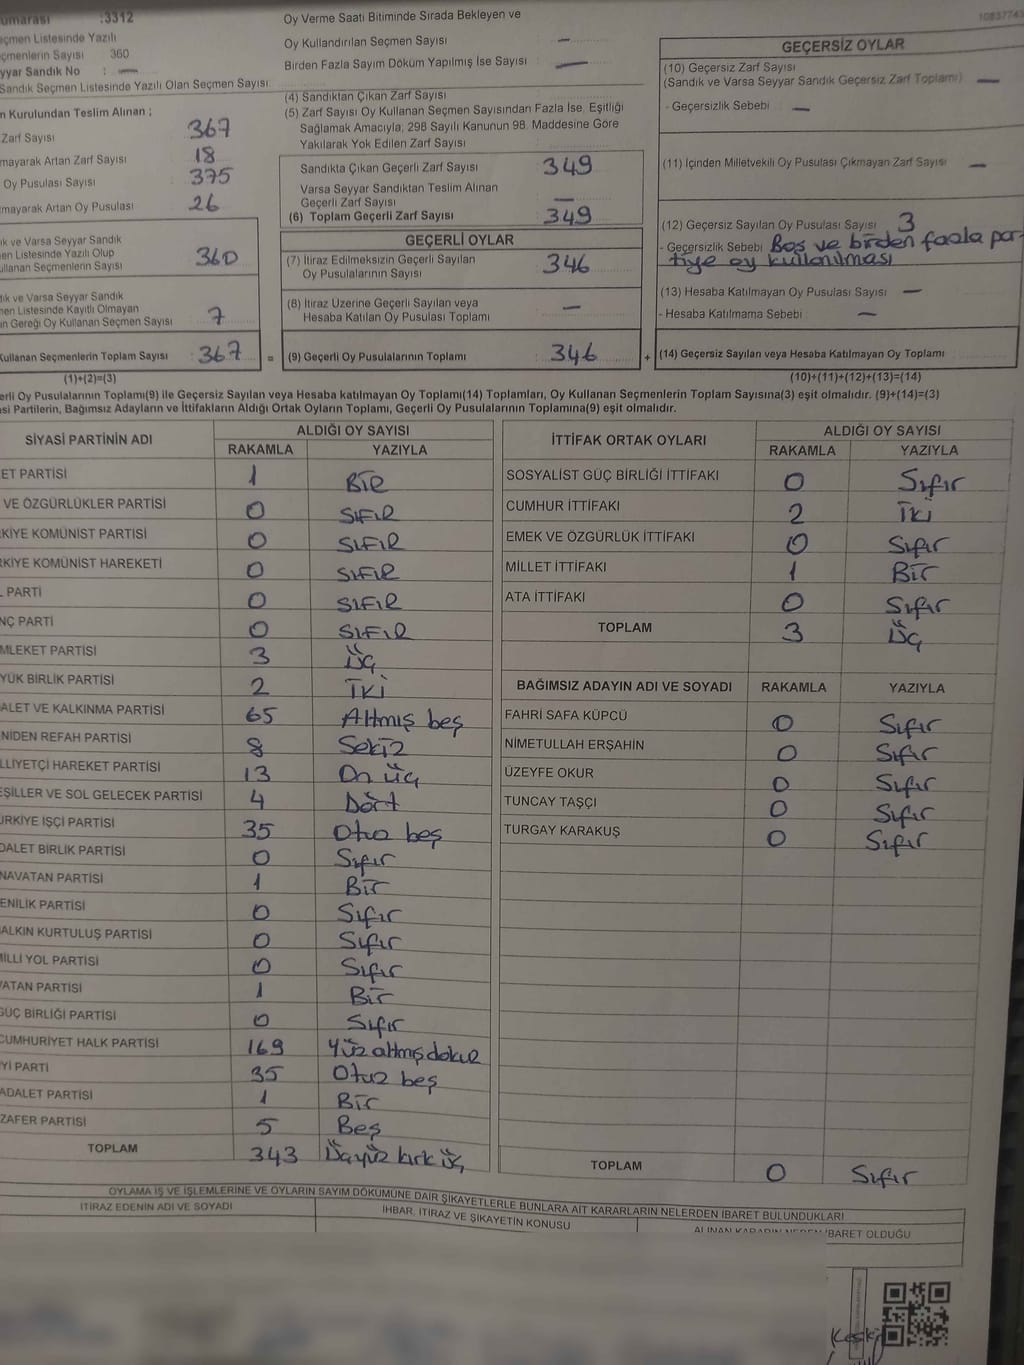 umarası :3312
eçmen Listesinde Yazılı
çmenlerin Sayısı 360
yyar Sandık No : —
Sandık Seçmen Listesinde Yazılı Olan Seçmen Sayısı
n Kurulundan Teslim Alınan ;
Zarf Sayısı 367
mayarak Artan Zarf Sayısı 18
Oy Pusulası Sayısı 375
mayarak Artan Oy Pusulası 26
ık ve Varsa Seyyar Sandık
en Listesinde Yazılı Olup
ullanan Seçmenlerin Sayısı 360
dık ve Varsa Seyyar Sandık
men Listesinde Kayıtlı Olmayan
ın Gereği Oy Kullanan Seçmen Sayısı 7
Kullanan Seçmenlerin Toplam Sayısı 367 =
(1)+(2)=(3)
Oy Verme Saati Bitiminde Sırada Bekleyen ve
Oy Kullandırılan Seçmen Sayısı —
Birden Fazla Sayım Döküm Yapılmış İse Sayısı —
(4) Sandıktan Çıkan Zarf Sayısı
(5) Zarf Sayısı Oy Kullanan Seçmen Sayısından Fazla İse, Eşitliği
Sağlamak Amacıyla, 298 Sayılı Kanunun 98. Maddesine Göre
Yakılarak Yok Edilen Zarf Sayısı
Sandıkta Çıkan Geçerli Zarf Sayısı 349
Varsa Seyyar Sandıktan Teslim Alınan
Geçerli Zarf Sayısı —
(6) Toplam Geçerli Zarf Sayısı 349
GEÇERLİ OYLAR
(7) İtiraz Edilmeksizin Geçerli Sayılan
Oy Pusulalarının Sayısı 346
(8) İtiraz Üzerine Geçerli Sayılan veya
Hesaba Katılan Oy Pusulası Toplamı —
(9) Geçerli Oy Pusulalarının Toplamı : 346 +
10837743
GEÇERSİZ OYLAR
(10) Geçersiz Zarf Sayısı
(Sandık ve Varsa Seyyar Sandık Geçersiz Zarf Toplamı) —
- Geçersizlik Sebebi —
(11) İçinden Milletvekili Oy Pusulası Çıkmayan Zarf Sayısı —
(12) Geçersiz Sayılan Oy Pusulası Sayısı 3
- Geçersizlik Sebebi Boş ve birden fazla par
tiye oy kullanılması
(13) Hesaba Katılmayan Oy Pusulası Sayısı —
- Hesaba Katılmama Sebebi —
(14) Geçersiz Sayılan veya Hesaba Katılmayan Oy Toplamı
(10)+(11)+(12)+(13)=(14)
erli Oy Pusulalarının Toplamı(9) ile Geçersiz Sayılan veya Hesaba katılmayan Oy Toplamı(14) Toplamları, Oy Kullanan Seçmenlerin Toplam Sayısına(3) eşit olmalıdır. (9)+(14)=(3)
si Partilerin, Bağımsız Adayların ve İttifakların Aldığı Ortak Oyların Toplamı, Geçerli Oy Pusulalarının Toplamına(9) eşit olmalıdır.
SİYASİ PARTİNİN ADI ALDIĞI OY SAYISI
RAKAMLA YAZIYLA
ET PARTİSİ 1 Bir
VE ÖZGÜRLÜKLER PARTİSİ 0 SIFIR
RKİYE KOMÜNİST PARTİSİ 0 SIFIR
RKİYE KOMÜNİST HAREKETİ 0 SIFIR
L PARTİ 0 SIFIR
NÇ PARTİ 0 SIFIR
MLEKET PARTİSİ 3 Üç
YÜK BİRLİK PARTİSİ 2 İki
ALET VE KALKINMA PARTİSİ 65 Altmış beş
NİDEN REFAH PARTİSİ 8 Sekiz
LLİYETÇİ HAREKET PARTİSİ 13 On üç
EŞİLLER VE SOL GELECEK PARTİSİ 4 Dört
ÜRKİYE İŞÇİ PARTİSİ 35 Otuz beş
DALET BİRLİK PARTİSİ 0 Sıfır
NAVATAN PARTİSİ 1 Bir
ENİLİK PARTİSİ 0 Sıfır
ALKIN KURTULUŞ PARTİSİ 0 Sıfır
MİLLİ YOL PARTİSİ 0 Sıfır
ATAN PARTİSİ 1 Bir
GÜÇ BİRLİĞİ PARTİSİ 0 Sıfır
CUMHURİYET HALK PARTİSİ 169 Yüz altmış dokuz
Yİ PARTİ 35 Otuz beş
ADALET PARTİSİ 1 Bir
ZAFER PARTİSİ 5 Beş
TOPLAM 343 Üçyüz kırk üç
İTTİFAK ORTAK OYLARI ALDIĞI OY SAYISI
RAKAMLA YAZIYLA
SOSYALİST GÜÇ BİRLİĞİ İTTİFAKI 0 Sıfır
CUMHUR İTTİFAKI 2 İki
EMEK VE ÖZGÜRLÜK İTTİFAKI 0 Sıfır
MİLLET İTTİFAKI 1 Bir
ATA İTTİFAKI 0 Sıfır
TOPLAM 3 Üç
BAĞIMSIZ ADAYIN ADI VE SOYADI RAKAMLA YAZIYLA
FAHRİ SAFA KÜPCÜ 0 Sıfır
NİMETULLAH ERŞAHİN 0 Sıfır
ÜZEYFE OKUR 0 Sıfır
TUNCAY TAŞÇI 0 Sıfır
TURGAY KARAKUŞ 0 Sıfır
TOPLAM 0 Sıfır
OYLAMA İŞ VE İŞLEMLERİNE VE OYLARIN SAYIM DÖKÜMÜNE DAİR ŞİKAYETLERLE BUNLARA AİT KARARLARIN NELERDEN İBARET BULUNDUKLARI
İTİRAZ EDENİN ADI VE SOYADI İHBAR, İTİRAZ VE ŞİKAYETİN KONUSU ALINAN KARARIN NEDEN İBARET OLDUĞU